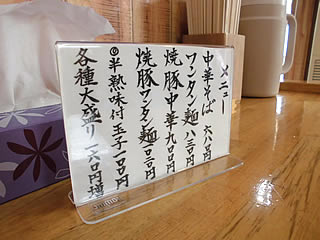 メニュー
中華そば 六八〇円
ワンタン麺 八三〇円
焼豚中華 九〇〇円
焼豚ワンタン麺 一〇三〇円
◎半熟味付玉子 一〇〇円
各種大盛り 一六〇円増